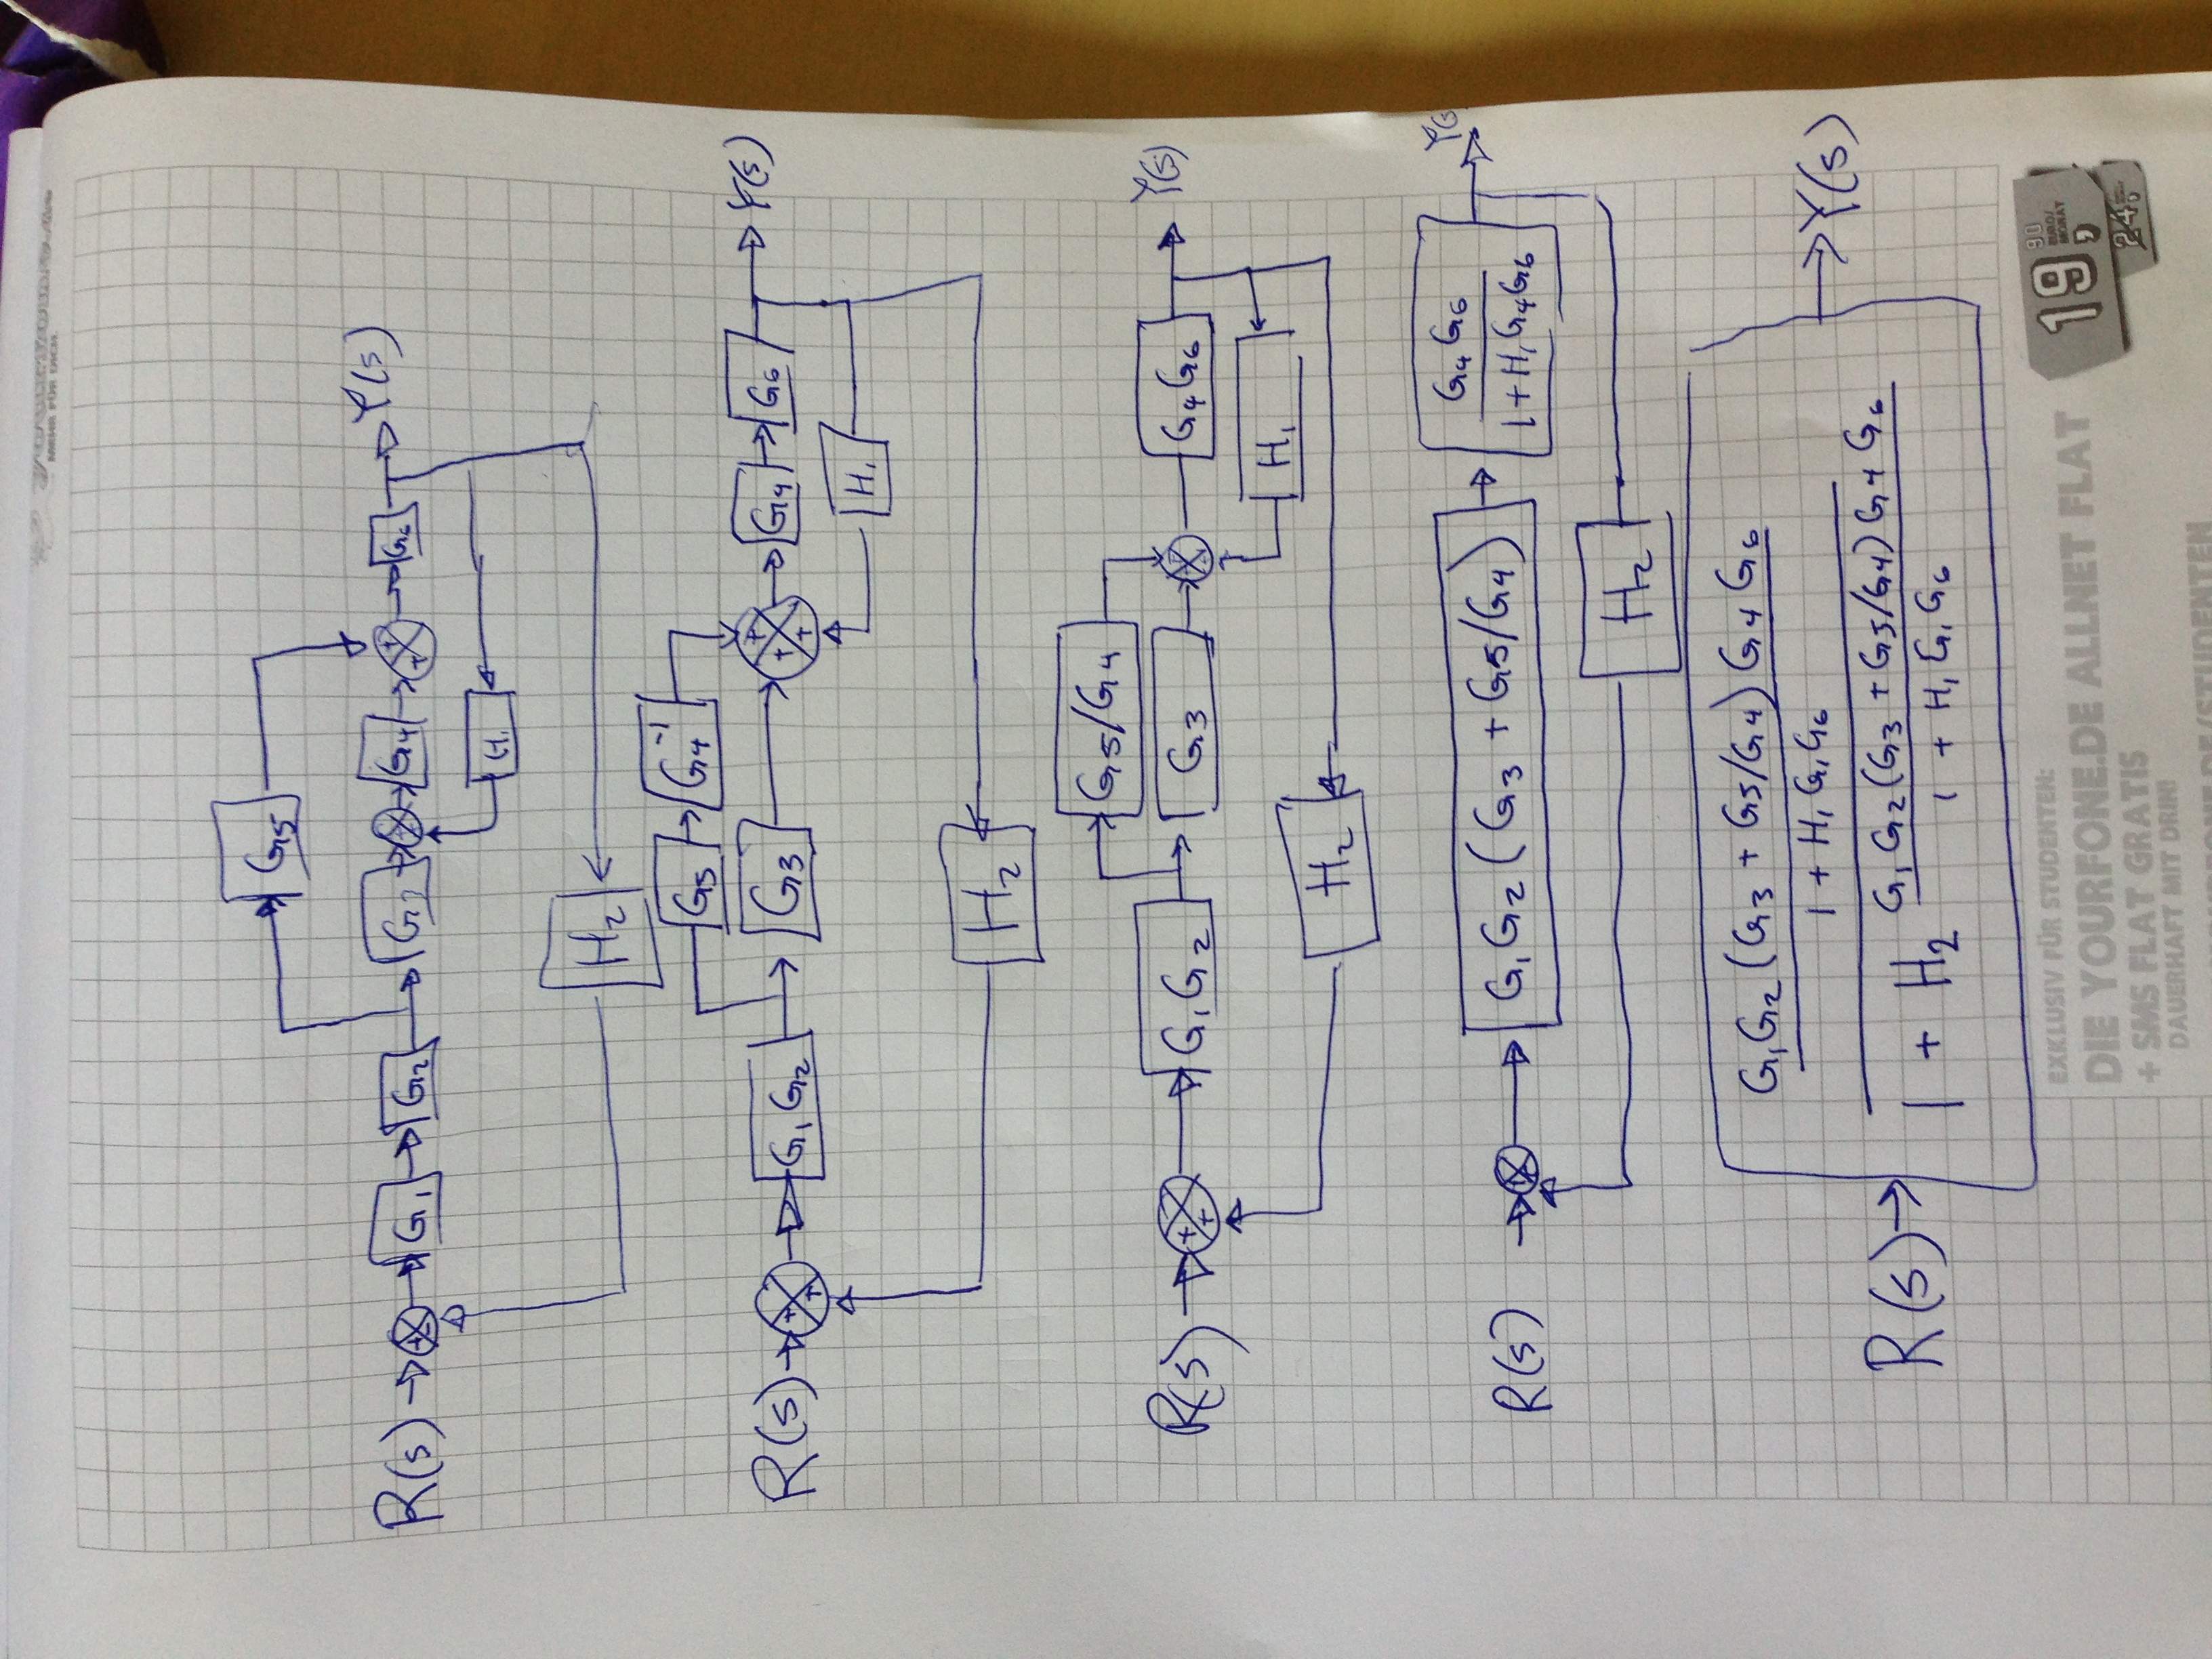 MEHR FÜR DICH.
G5
R(s) G1 G2 G3 G4 + + G6 Y(s)
H1
H2
G5 G4^-1
R(s) + + G1 G2 G3 + + + G4 G6 Y(s)
H1
H2
G5/G4
R(s) + + G1 G2 G3 G4 G6 Y(s)
H1
H2
G4 G6
R(s) G1 G2 (G3 + G5/G4) Y(s
1 + H1 G4 G6
H2
G1 G2 (G3 + G5/G4) G4 G6
1 + H1 G1 G6
R(s) Y(s)
G1 G2 (G3 + G5/G4) G4 G6
1 + H2
1 + H1 G1 G6
EXKLUSIV FÜR STUDENTEN:
DIE YOURFONE.DE ALLNET FLAT
+ SMS FLAT GRATIS
DAUERHAFT MIT DRIN!
19,90 EURO/MONAT
24,